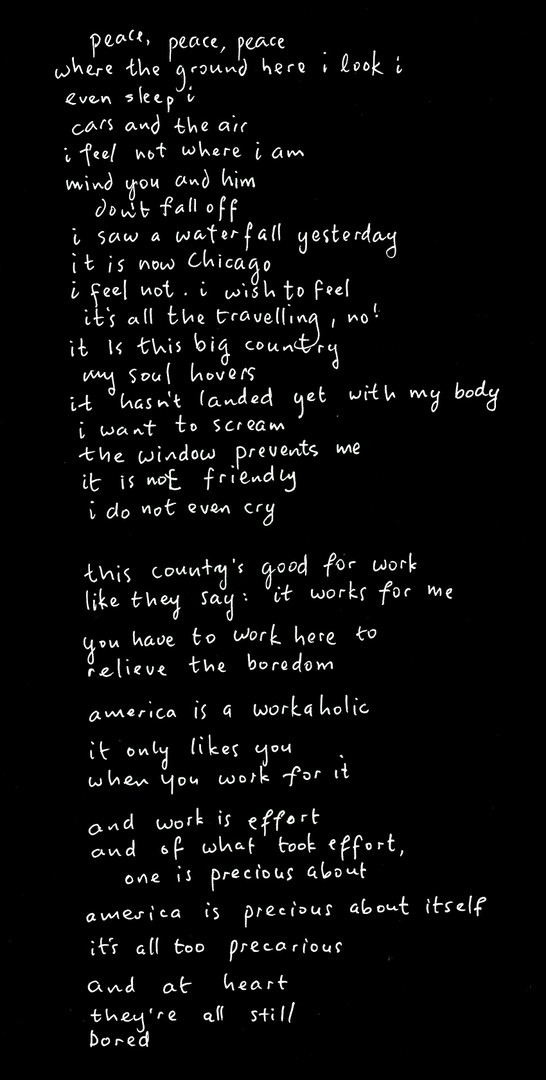 peace, peace, peace
where the ground here i look i
even sleep i
cars and the air
i feel not where i am
mind you and him
don't fall off
i saw a waterfall yesterday
it is now Chicago
i feel not. i wish to feel
it's all the travelling, no!
it Is this big country
my soul hovers
it hasn't landed yet with my body
i want to scream
the window prevents me
it is not friendly
i do not even cry
this country's good for work
like they say: it works for me
you have to work here to
relieve the boredom
america is a workaholic
it only likes you
when you work for it
and work is effort
and of what took effort,
one is precious about
america is precious about itself
it's all too precarious
and at heart
they're all still
bored